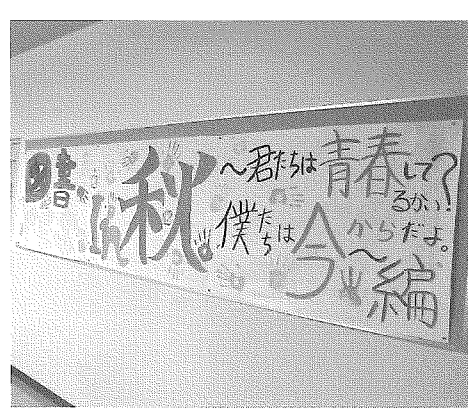 図書 In 秋
〜君たちは青春してるかい?!
僕たちは今からだよ。〜編